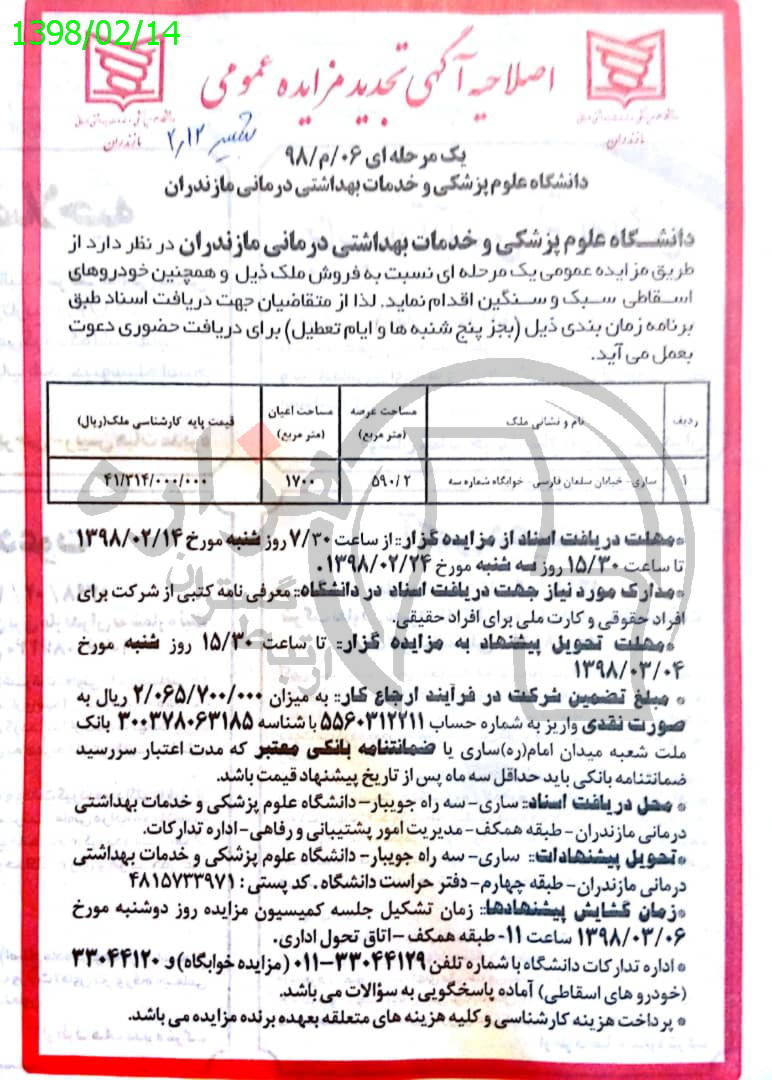 1398/02/14
اصلاحیه آگهی تجدید مزایده عمومی
مازندران
مازندران
۲٫۱۲
یک مرحله ای ۰۶/م/۹۸
دانشگاه علوم پزشکی و خدمات بهداشتی درمانی مازندران
دانشـگاه علوم پزشکی و خدمات بهداشتی درمانی مازندران در نظر دارد از
طریق مزایده عمومی یک مرحله ای نسبت به فروش ملک ذیل و همچنین خودروهای
اسـقاطی سـبک و سـنگین اقدام نماید. لذا از متقاضیان جهت دریافت اسناد طبق
برنامه زمان بندی ذیل (بجز پنج شنبه ها و ایام تعطیل) برای دریافت حضوری دعوت
بعمل می آید.
ردیف نام و نشانی ملک مساحت عرصه (متر مربع) مساحت اعیان (متر مربع) قیمت پایه کارشناسی ملک(ریال)
۱ ساری- خیابان سلمان فارسی- خوابگاه شماره سه ۵۹۰/۲ ۱۷۰۰ ۴۱/۳۱۴/۰۰۰/۰۰۰
*مهلت دریافت اسناد از مزایده گزار:: از ساعت ۷/۳۰ روز شنبه مورخ ۱۳۹۸/۰۲/۱۴
تا ساعت ۱۵/۳۰ روز سه شنبه مورخ ۱۳۹۸/۰۲/۲۴.
*مدارک مورد نیاز جهت دریافت اسناد در دانشگاه:: معرفی نامه کتبی از شرکت برای
افراد حقوقی و کارت ملی برای افراد حقیقی.
*مهلت تحویل پیشنهاد به مزایده گزار:: تا ساعت ۱۵/۳۰ روز شنبه مورخ
۱۳۹۸/۰۳/۰۴
* مبلغ تضمین شرکت در فرآیند ارجاع کار:: به میزان ۲/۰۶۵/۷۰۰/۰۰۰ ریال به
صورت نقدی واریز به شماره حساب ۵۵۶۰۳۱۲۲۱۱ با شناسه ۳۰۰۳۷۸۰۶۳۱۸۵ بانک
ملت شعبه میدان امام(ره)ساری یا ضمانتنامه بانکی معتبر که مدت اعتبار سررسید
ضمانتنامه بانکی باید حداقل سه ماه پس از تاریخ پیشنهاد قیمت باشد.
* محل دریافت اسناد:: ساری-سه راه جویبار-دانشگاه علوم پزشکی و خدمات بهداشتی
درمانی مازندران- طبقه همکف- مدیریت امور پشتیبانی و رفاهی-اداره تدارکات.
*تحویل پیشنهادات:: ساری- سه راه جویبار- دانشگاه علوم پزشکی و خدمات بهداشتی
درمانی مازندران- طبقه چهارم- دفتر حراست دانشگاه. کد پستی: ۴۸۱۵۷۳۳۹۷۱
*زمان گشایش پیشنهادها:: زمان تشکیل جلسه کمیسیون مزایده روز دوشنبه مورخ
۱۳۹۸/۰۳/۰۶ ساعت ۱۱- طبقه همکف -اتاق تحول اداری.
* اداره تدارکات دانشگاه با شماره تلفن ۳۳۰۴۴۱۲۹-۰۱۱ (مزایده خوابگاه) و ۳۳۰۴۴۱۲۰
(خودرو های اسقاطی) آماده پاسخگویی به سؤالات می باشد.
* پرداخت هزینه کارشناسی و کلیه هزینه های متعلقه بعهده برنده مزایده می باشد.